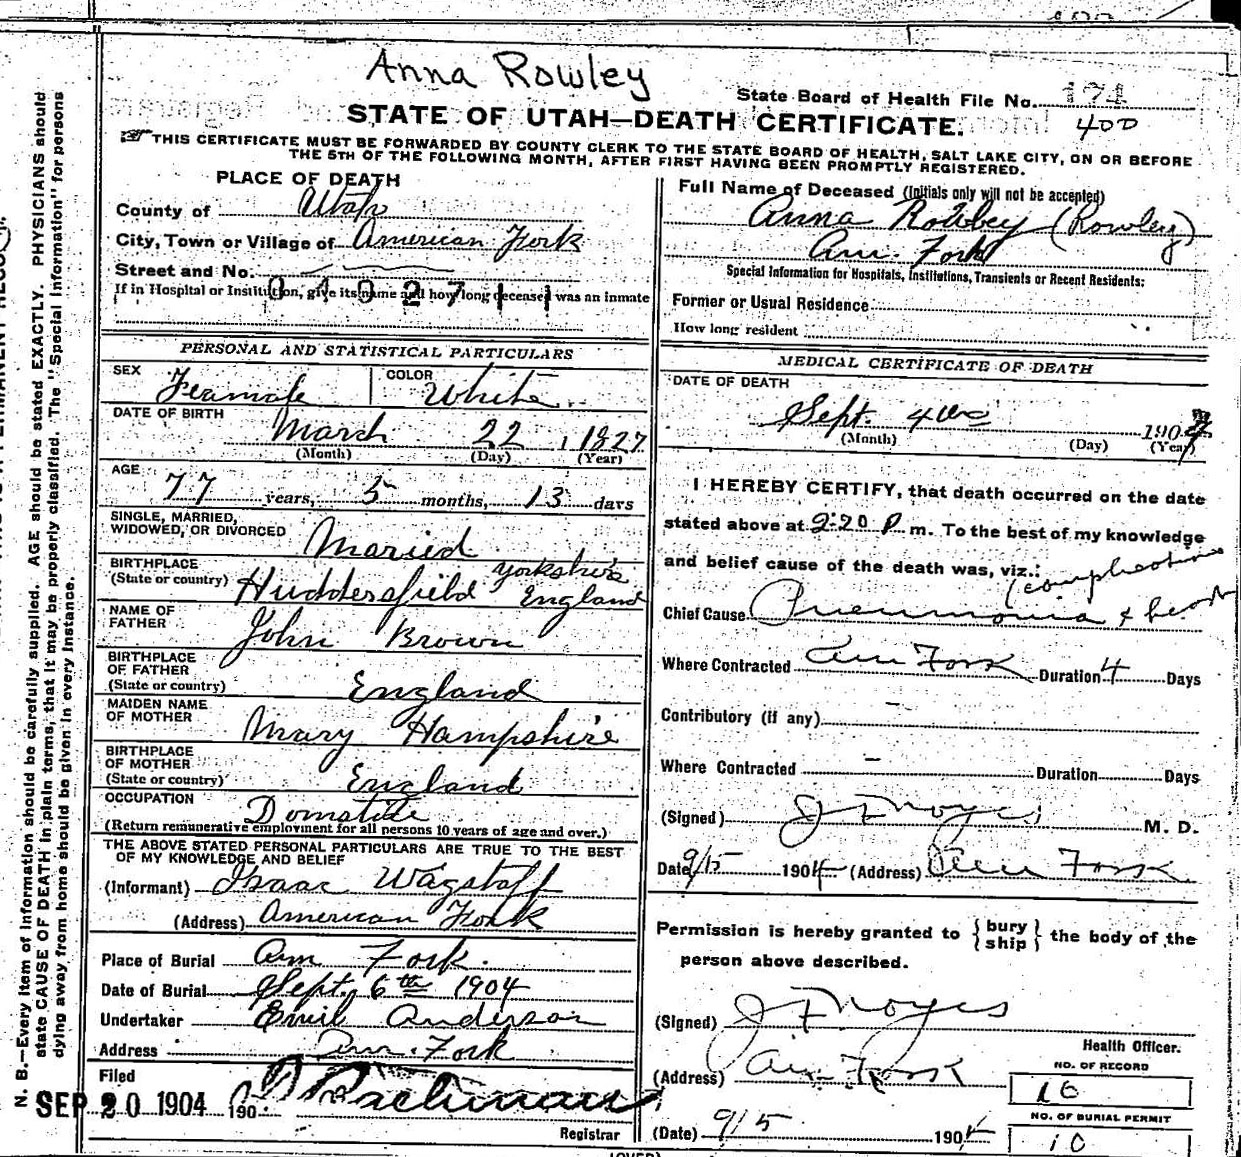 Anna Rowley
State Board of Health File No. 174
400
STATE OF UTAH—DEATH CERTIFICATE.
THIS CERTIFICATE MUST BE FORWARDED BY COUNTY CLERK TO THE STATE BOARD OF HEALTH, SALT LAKE CITY, ON OR BEFORE
THE 5TH OF THE FOLLOWING MONTH, AFTER FIRST HAVING BEEN PROMPTLY REGISTERED.
PLACE OF DEATH
County of Utah
City, Town or Village of American Fork
Street and No.
If in Hospital or Institution, give its name and how long deceased was an inmate
Full Name of Deceased (Initials only will not be accepted)
Anna Rowbey (Rowley)
Am. Fork
Special Information for Hospitals, Institutions, Transients or Recent Residents:
Former or Usual Residence
How long resident
PERSONAL AND STATISTICAL PARTICULARS
SEX Feamale COLOR White
DATE OF BIRTH
March 22, 1827
(Month) (Day) (Year)
AGE
77 years, 5 months, 13 days
SINGLE, MARRIED,
WIDOWED, OR DIVORCED Maried
BIRTHPLACE Yorkshire
(State or country) Huddersfield England
NAME OF
FATHER John Brown
BIRTHPLACE
OF FATHER
(State or country) England
MAIDEN NAME
OF MOTHER Mary Hampshire
BIRTHPLACE
OF MOTHER
(State or country) England
OCCUPATION Domstice
(Return remunerative employment for all persons 10 years of age and over.)
THE ABOVE STATED PERSONAL PARTICULARS ARE TRUE TO THE BEST
OF MY KNOWLEDGE AND BELIEF
(Informant) Isaac Wagstaff
(Address) American Fork
Place of Burial Am Fork.
Date of Burial Sept. 6th 1904
Undertaker Emil Anderson
Address Am. Fork
Filed
SEP 20 1904 190
Registrar
MEDICAL CERTIFICATE OF DEATH
DATE OF DEATH
Sept. 4th 190
(Month) (Day) (Year)
I HEREBY CERTIFY, that death occurred on the date
stated above at 2:20 P m. To the best of my knowledge
and belief cause of the death was, viz.:
(complications
Chief Cause Pneumonia & heart
Where Contracted Am Fork Duration 4 Days
Contributory (if any) –
Where Contracted – Duration Days
(Signed) J F Noyes M. D.
Date 9/15 1904 (Address) Am Fork
Permission is hereby granted to { bury ship } the body of the
person above described.
(Signed) J F Noyes
Health Officer.
(Address) Am Fork
NO. OF RECORD
10
NO. OF BURIAL PERMIT
10
(Date) 9/5 1904
(OVER)
N. B.—Every item of information should be carefully supplied. AGE should be stated EXACTLY. PHYSICIANS should
state CAUSE OF DEATH in plain terms, that it may be properly classified. The "Special Information" for persons
dying away from home should be given in every instance.